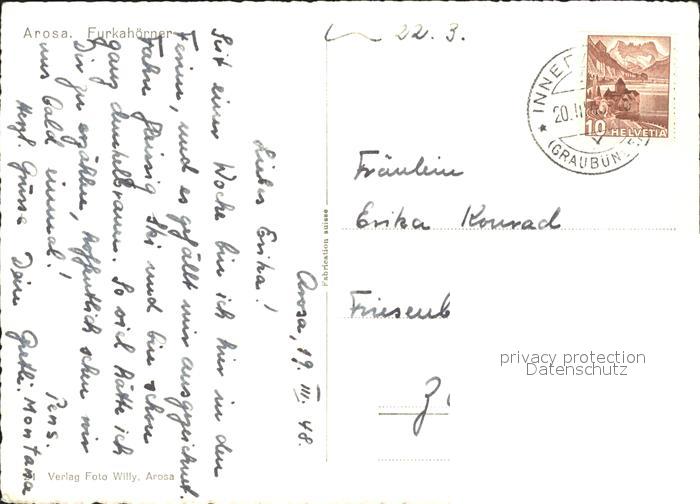 Arosa. Furkahörner
Arosa, 19. III. 48.
Liebe Erika!
Seit einer Woche bin ich hier in den
Ferien, und es gefällt mir ausgezeichnet
Fahre fleissig Ski und bin schon
ganz dunkelbraun. So viel hätte ich
Dir zu erzählen, hoffentlich sehen wir
uns bald einmal!
Herzl. Grüsse Dein Gretli.
Pens. Montana
Verlag Foto Willy, Arosa
Fabrication suisse
22. 3.
INNER
20. III.
(GRAUBÜN
10 HELVETIA
Fräulein
Erika Konrad
Friesenb
Z
privacy protection
Datenschutz